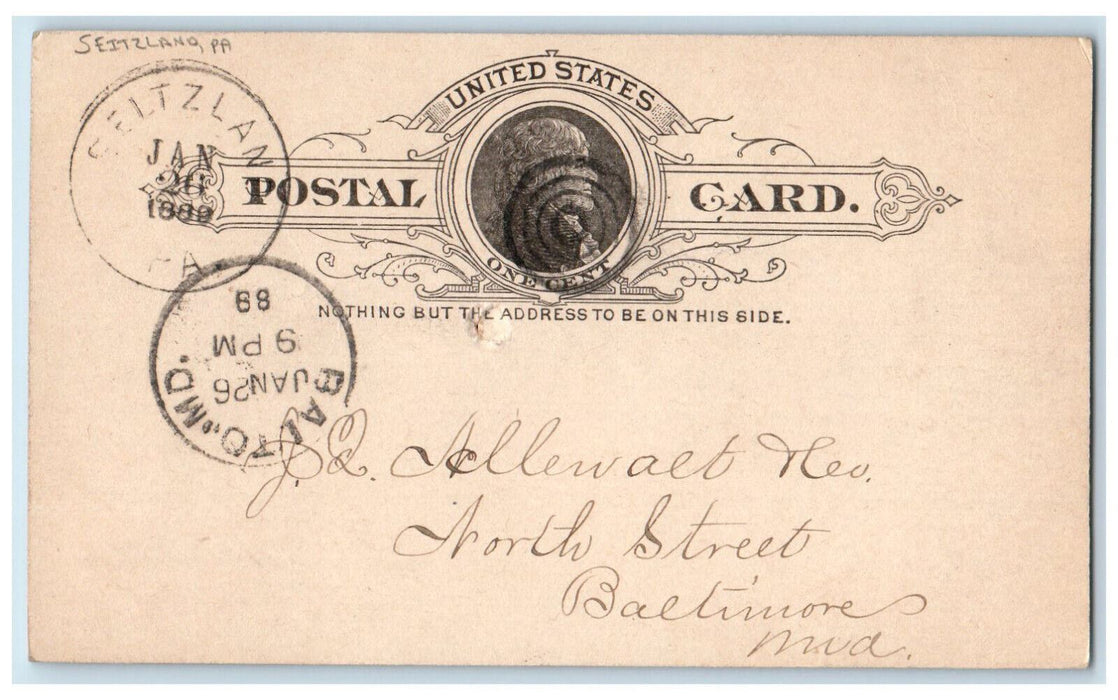 SEITZLAND, PA
SEITZLAND
JAN
26
1889
PA.
UNITED STATES
POSTAL CARD.
ONE CENT
NOTHING BUT THE ADDRESS TO BE ON THIS SIDE.
BALTO., MD.
JAN 26
9 PM
89
J. Q. A. Hollewalt
North Street
Baltimore
Md.